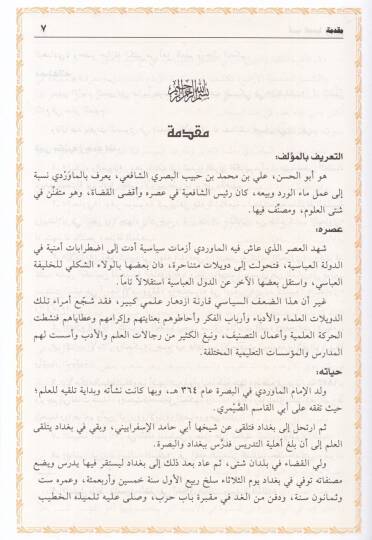 مقدمة
٧
بسم الله الرحمن الرحيم
مقدمة
التعريف بالمؤلف:
هو أبو الحسن، علي بن محمد بن حبيب البصري الشافعي، يعرف بالماوَرْدي نسبة
إلى عمل ماء الورد وبيعه، كان رئيس الشافعية في عصره وأقضى القضاة، وهو متفنّن في
شتى العلوم، ومصنِّف فيها.
عصره:
شهد العصر الذي عاش فيه الماوردي أزمات سياسية أدت إلى اضطرابات أمنية في
الدولة العباسية، فتحولت إلى دويلات متناحرة، دان بعضها بالولاء الشكلي للخليفة
العباسي، واستقل بعضها الآخر عن الدول العباسية استقلالاً تاماً.
غير أن هذا الضعف السياسي قارنة ازدهار علمي كبير، فقد شجّع أمراء تلك
الدويلات العلماء والأدباء وأرباب الفكر وأحاطوهم بعنايتهم وإكرامهم وعطاياهم فنشطت
الحركة العلمية وأعمال التصنيف، ونبغ الكثير من رجالات العلم والأدب وأسست لهم
المدارس والمؤسسات التعليمية المختلفة.
حياته:
ولد الإمام الماوردي في البصرة عام ٣٦٤ هـ، وبها كانت نشأته وبداية تلقيه للعلم؛
حيث تفقه على أبي القاسم الصَّيْمري.
ثم ارتحل إلى بغداد فتلقى عن شيخها أبي حامد الإسفراييني، وبقي في بغداد يتلقى
العلم إلى أن بلغ أهلية التدريس فدرَّس ببغداد والبصرة.
ولي القضاء في بلدان شتى، ثم عاد بعد ذلك إلى بغداد ليستقر فيها يدرس ويضع
مصنفاته توفي في بغداد يوم الثلاثاء سلخ ربيع الأول سنة خمسين وأربعمئة، وعمره ست
وثمانون سنة، ودفن من الغد في مقبرة باب حرب، وصلى عليه تلميذه الخطيب